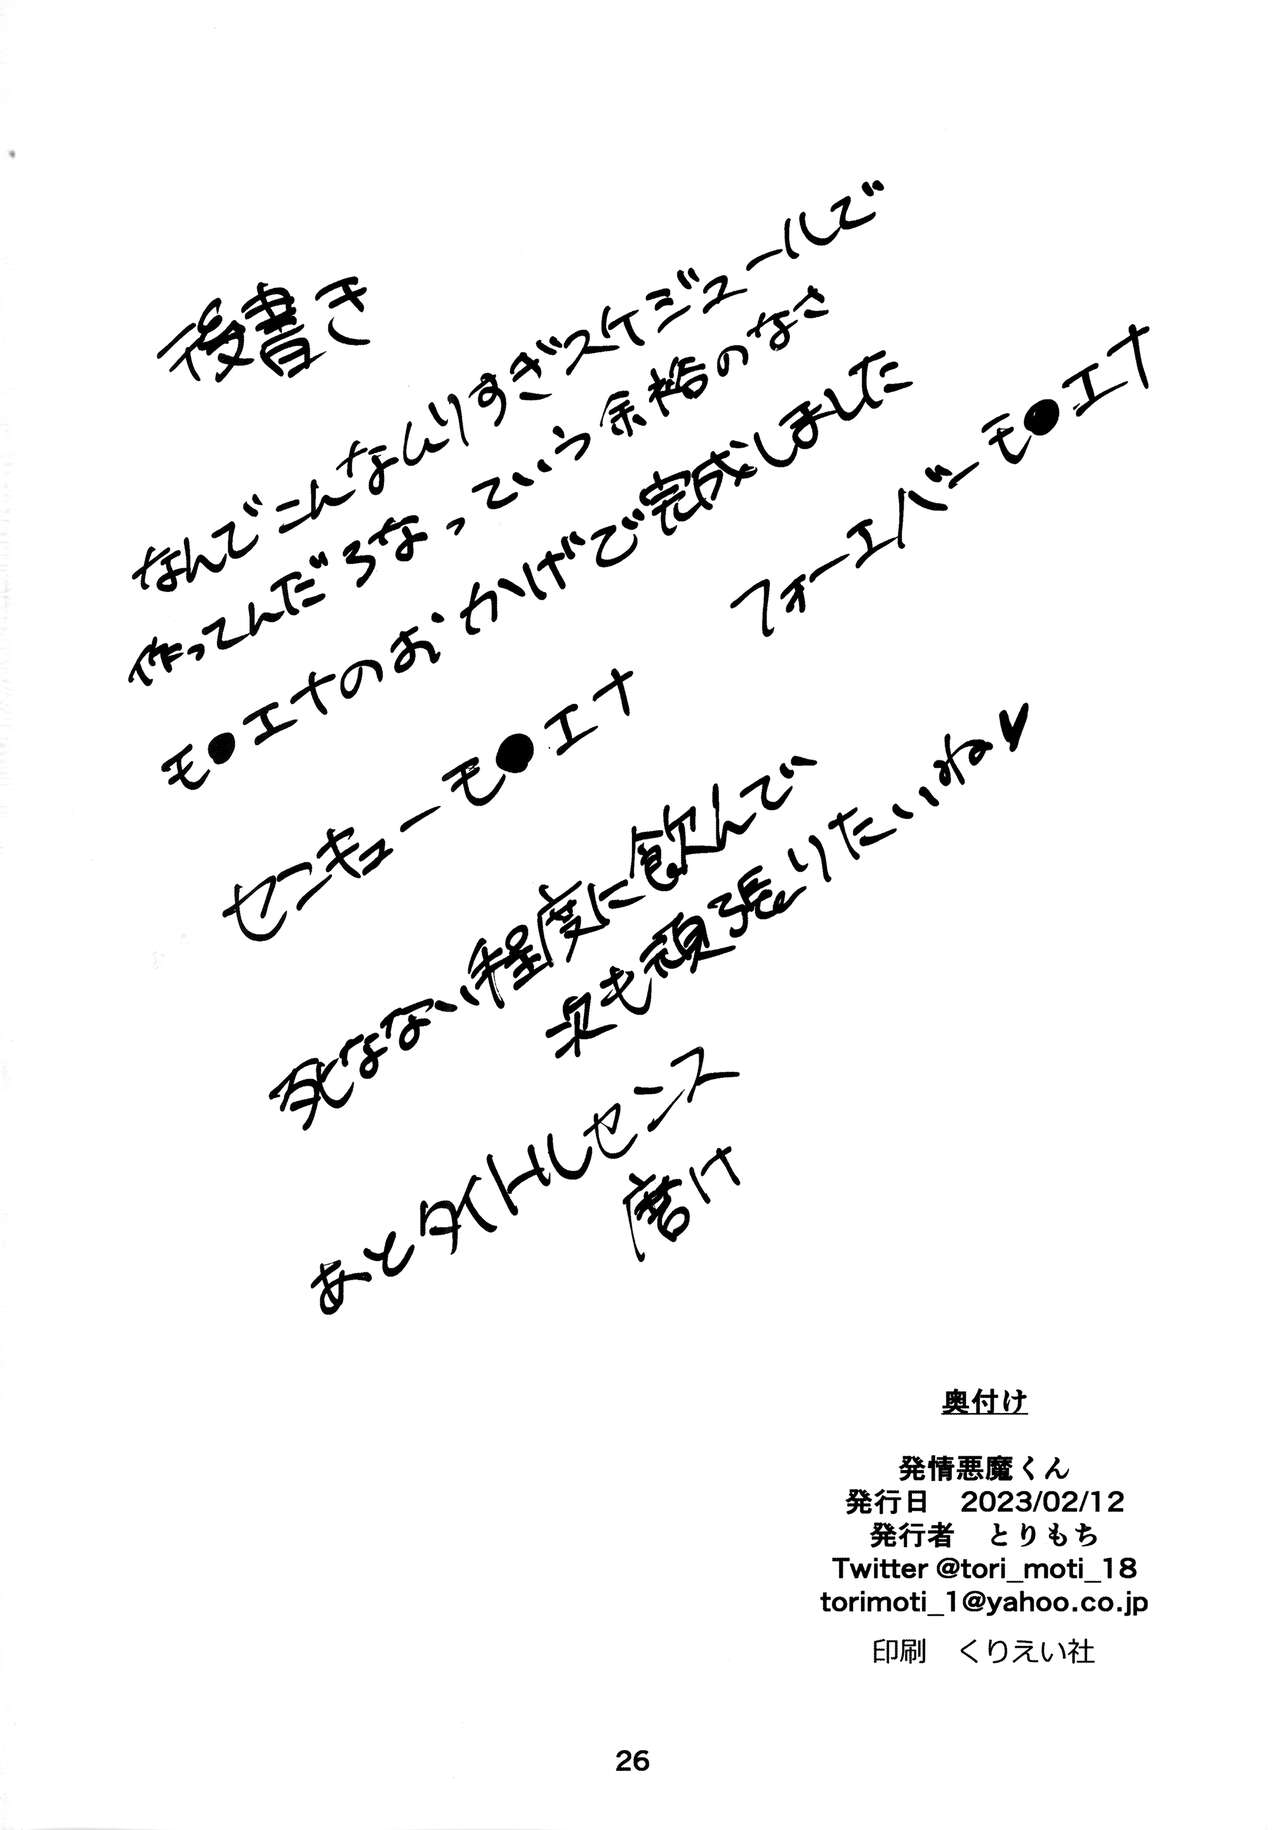 後書き
なんでこんなんりすぎスケジュールで
作ってんだろなっていう余裕のなさ
モ●エナのおかげで完成しました
フォーエバーモ●エナ
センキューモ●エナ
死なない程度に飲んで
次も頑張りたいね♥
あとタイトルセンス
磨け
奥付け
発情悪魔くん
発行日　2023/02/12
発行者　とりもち
Twitter @tori_moti_18
torimoti_1@yahoo.co.jp
印刷　くりえい社
26